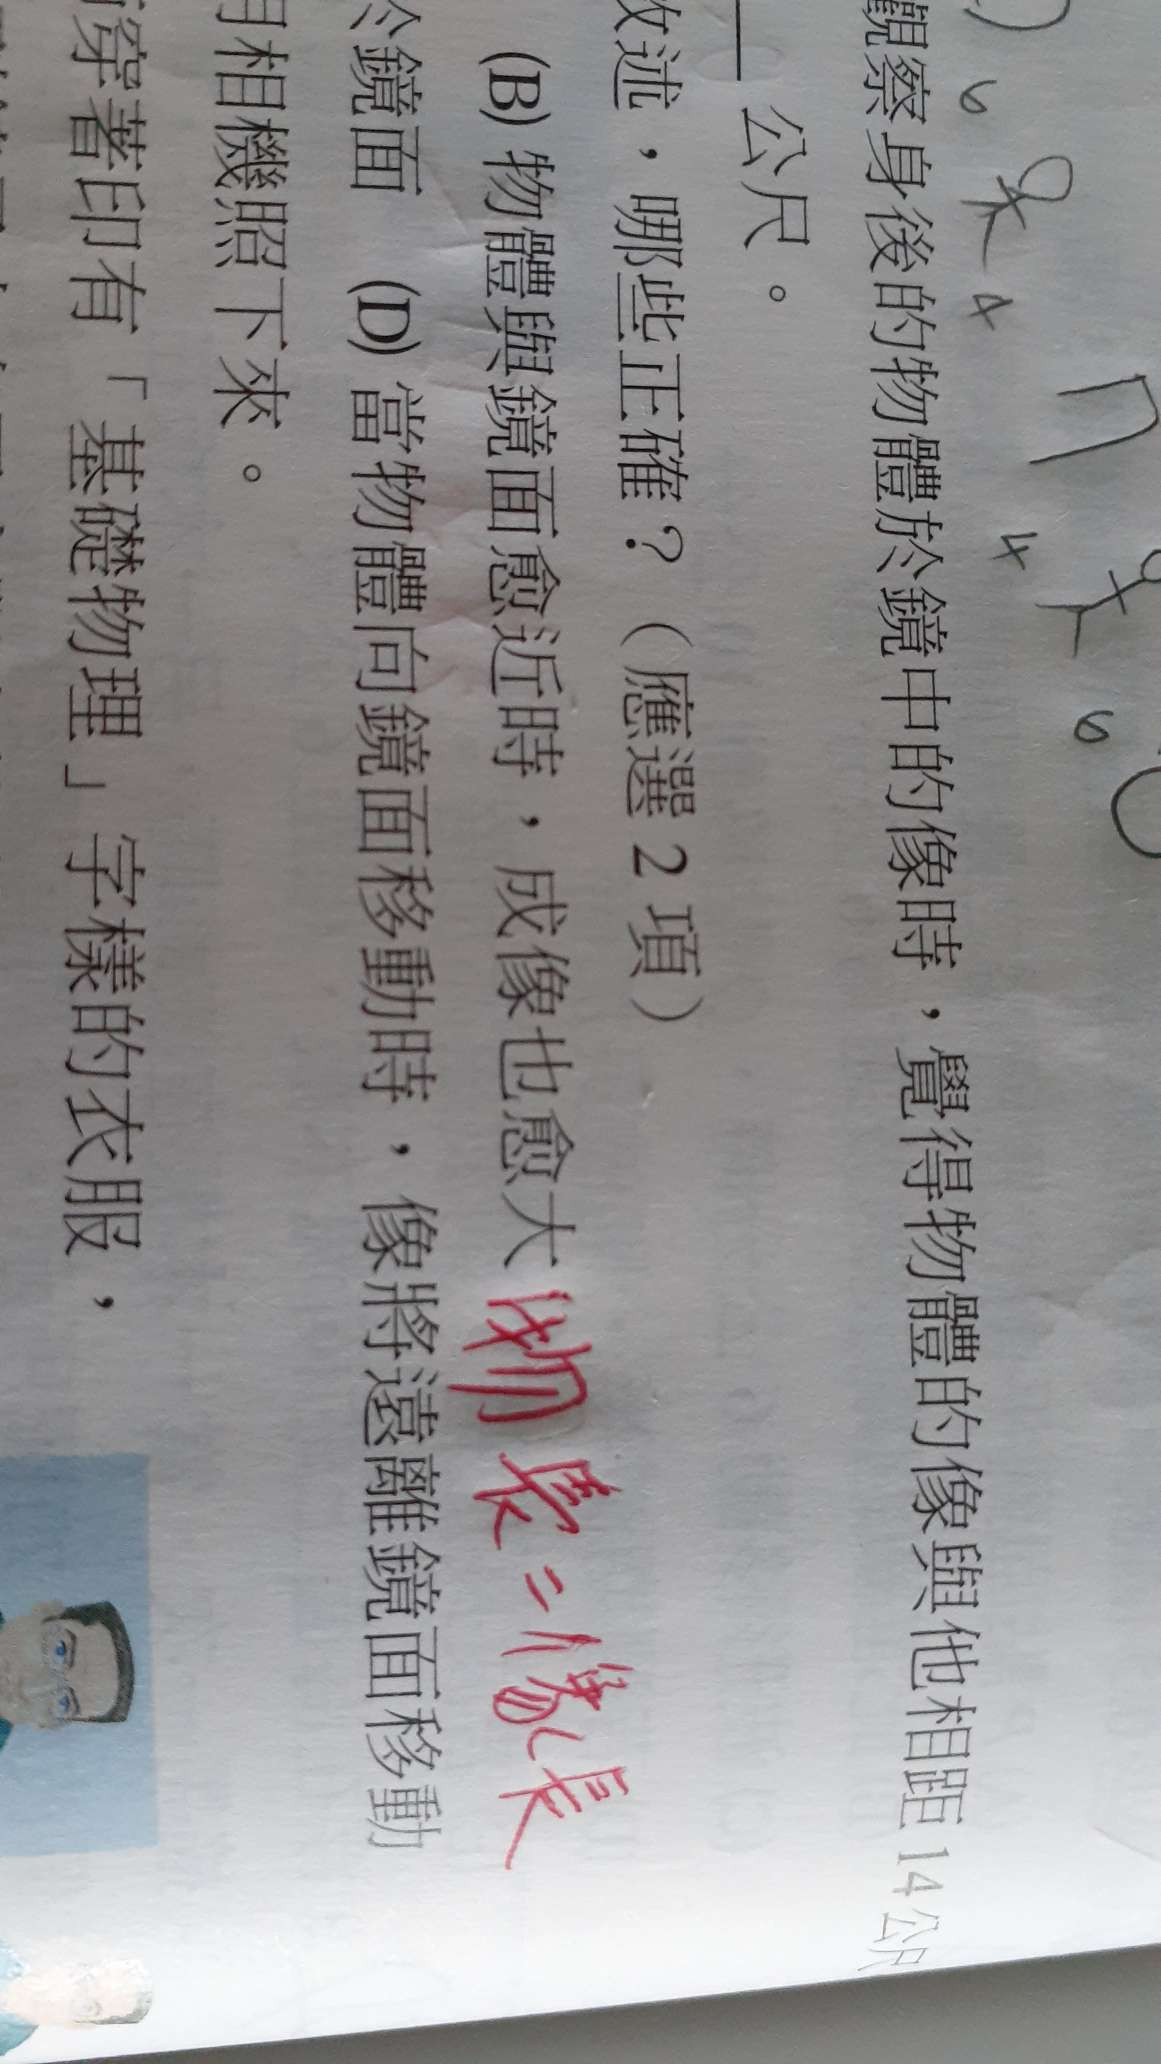 6 4 4 6
觀察身後的物體於鏡中的像時,覺得物體的像與他相距14公尺
公尺。
敘述,哪些正確?(應選2項)
(B) 物體與鏡面愈近時,成像也愈大 物長=像長
鏡面 (D) 當物體向鏡面移動時,像將遠離鏡面移動
相機照下來。
穿著印有「基礎物理」字樣的衣服,